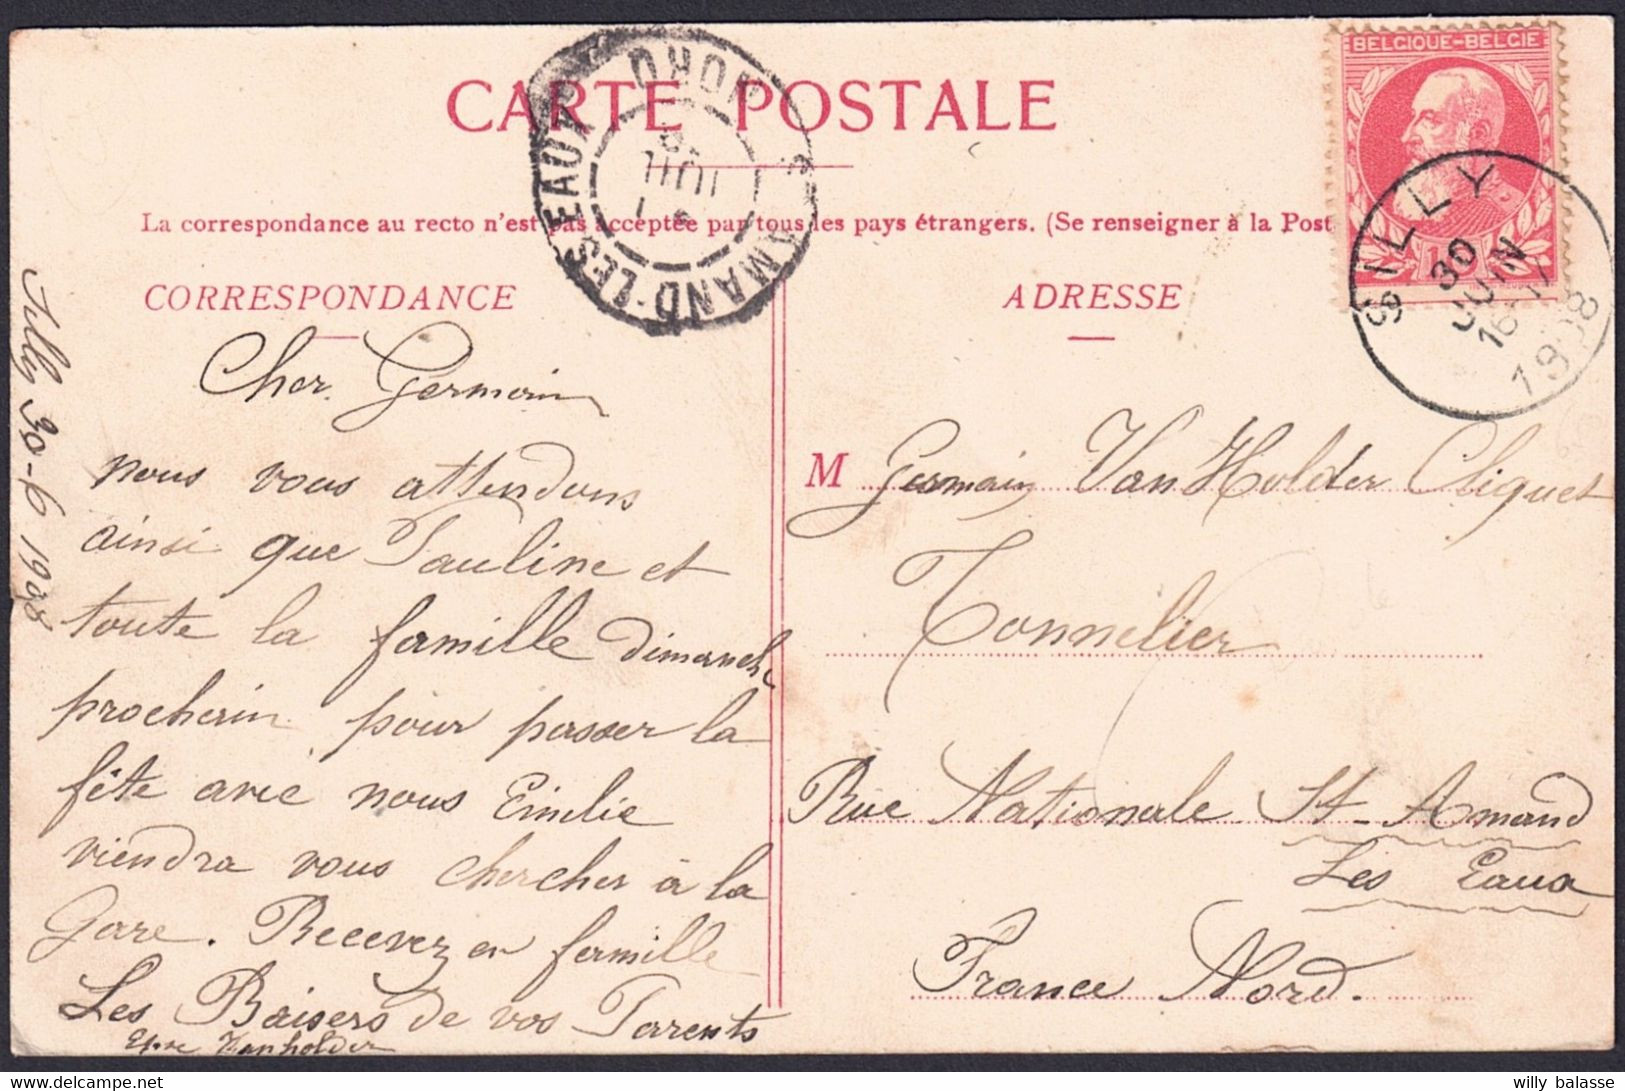 CARTE POSTALE
La correspondance au recto n'est pas acceptée par tous les pays étrangers. (Se renseigner à la Post
CORRESPONDANCE
ADRESSE
BELGIQUE-BELGIË
SILLY
30
JUIN
16-17
1908
AMAND-LES-EAUX
NORD
JUIL
Silly 30-6 1908
Cher Germain
nous vous attendons
ainsi que Pauline et
toute la famille dimanche
procherin pour passer la
fête avec nous Emilie
viendra vous chercher à la
Gare. Recevez en famille
Les Baisers de vos Parents
Vanholder
M Germain VanHolder Cliquet
Tonnelier
Rue Nationale St-Amand
Les Eaux
France Nord.
willy balasse